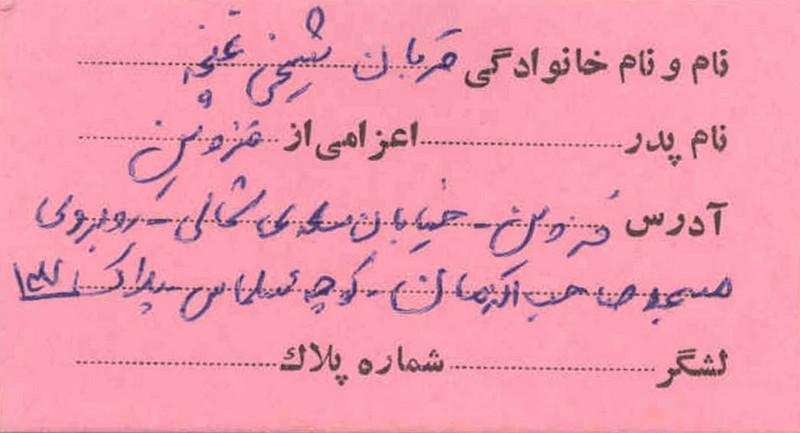 نام و نام خانوادگی قربان شیخی
نام پدر اعزامی از قزوین
آدرس قزوین - خیابان سعدی شمالی - روبروی
مسجد صاحب الزمان - کوچه - پلاک
لشگر شماره پلاك